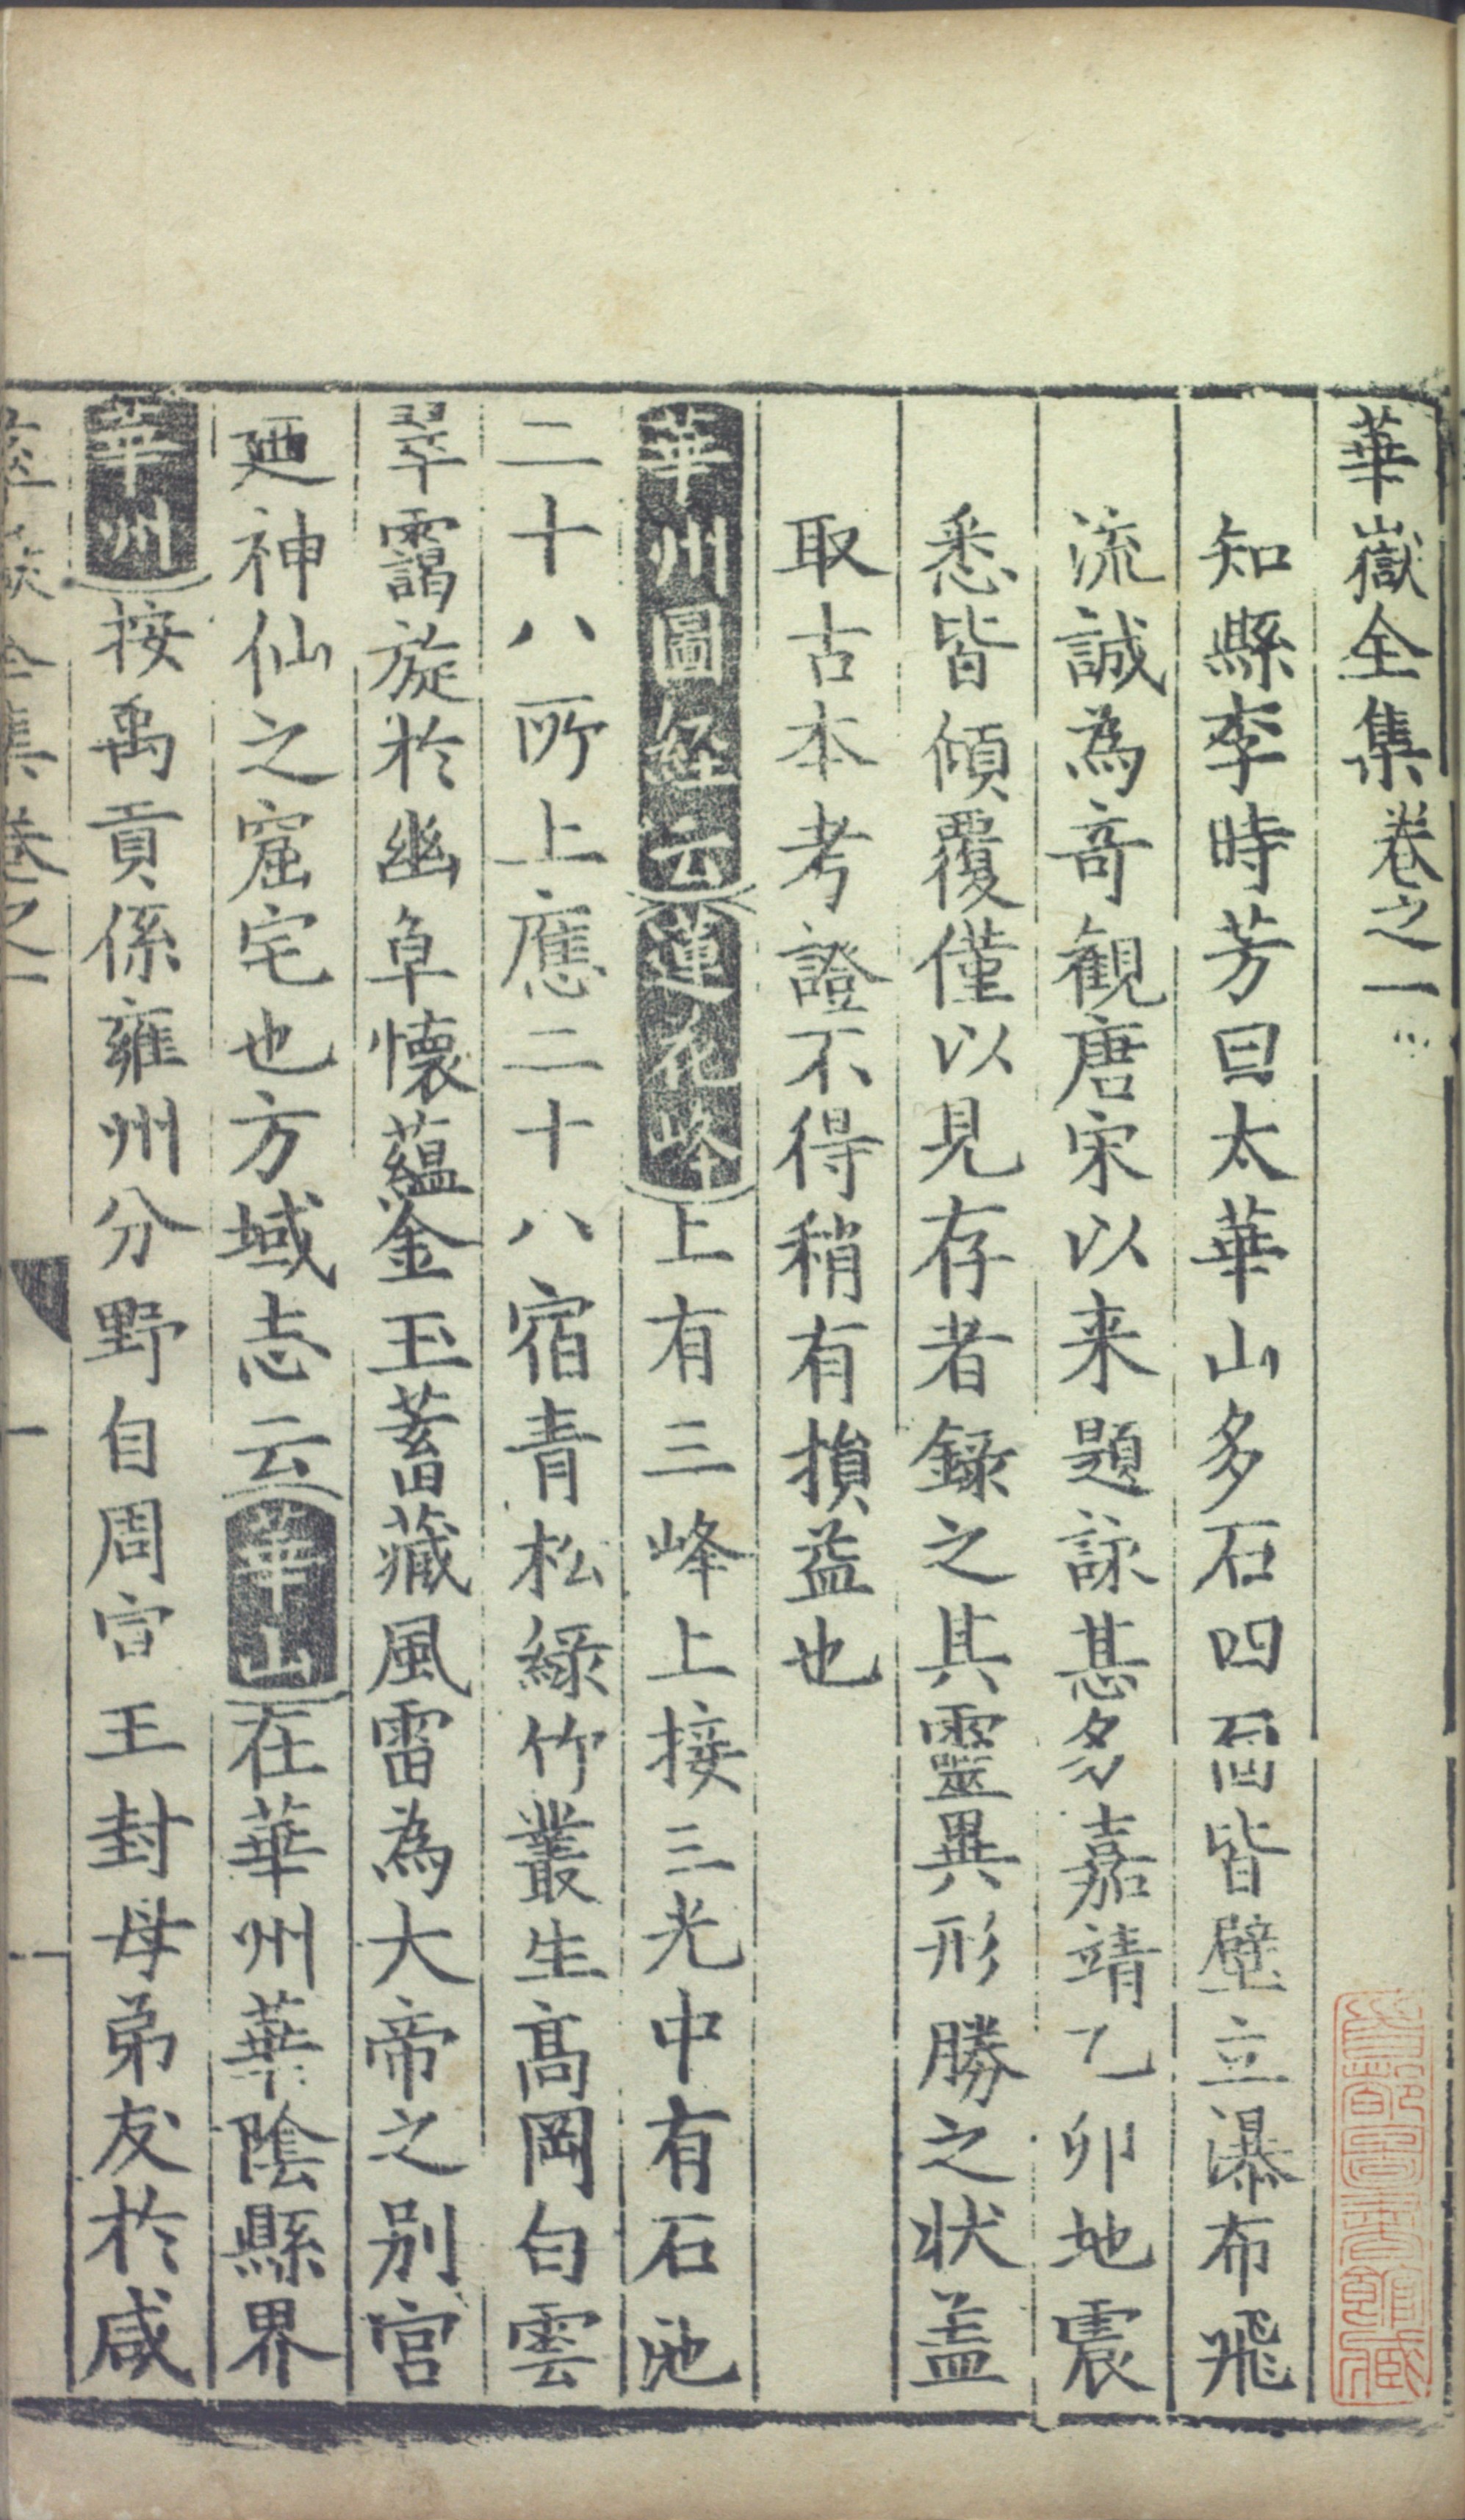 華嶽全集卷之一
知縣李時芳曰太華山多石四面皆壁立瀑布飛
流誠為竒觀唐宋以来題詠甚多嘉靖乙卯地震
悉皆傾覆僅以見存者録之其靈異形勝之状盖
取古本考證不得稍有損益也
華州圖經云蓮花峰上有三峰上接三光中有石池
二十八所上應二十八宿青松緑竹叢生高岡白雲
翠靄旋於幽阜懷蘊金玉蓄藏風雷為大帝之别宫
廼神仙之窟宅也方域志云華山在華州華隂縣界
華州按禹貢係雍州分野自周宣王封母弟友於咸
華嶽全集卷之一
一